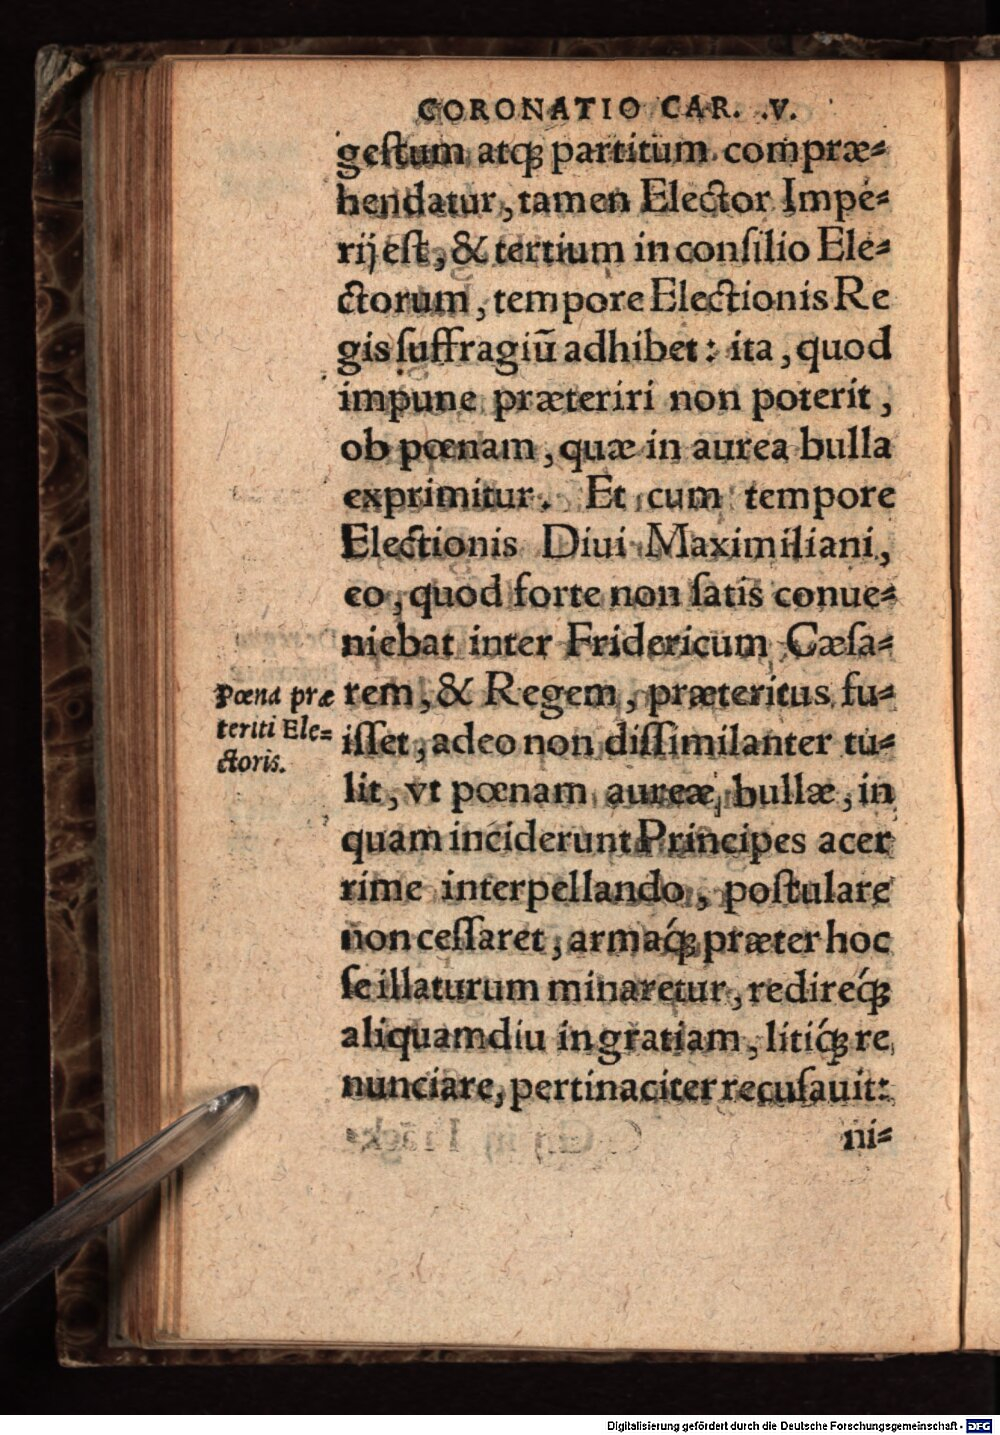 CORONATIO CAR. .V.
geſtum atq́ꝫ partitum compræ⸗
hendatur, tamen Elector Impe⸗
rij eſt, & tertium in conſilio Ele⸗
ctorum, tempore Electionis Re
gis ſuffragiũ adhibet: ita, quod
impune præteriri non poterit,
ob pœnam, quæ in aurea bulla
exprimitur. Et cum tempore
Electionis Diui Maximiliani,
eo, quod forte non ſatis conue⸗
niebat inter Fridericum Cæſa⸗
rem, & Regem, præteritus fu⸗
iſſet, adeo non diſſimilanter tu⸗
lit, vt pœnam aureæ bullæ, in
quam inciderunt Principes acer
rime interpellando, poſtulare
non ceſſaret, armaq́ꝫ præter hoc
ſe illaturum minaretur, redireq́ꝫ
aliquamdiu in gratiam, litiq́ꝫ re
nunciare, pertinaciter recuſauit:
ni⸗
Pœna præ
teriti Ele⸗
ctoris.
Digitalisierung gefördert durch die Deutsche Forschungsgemeinschaft - DFG